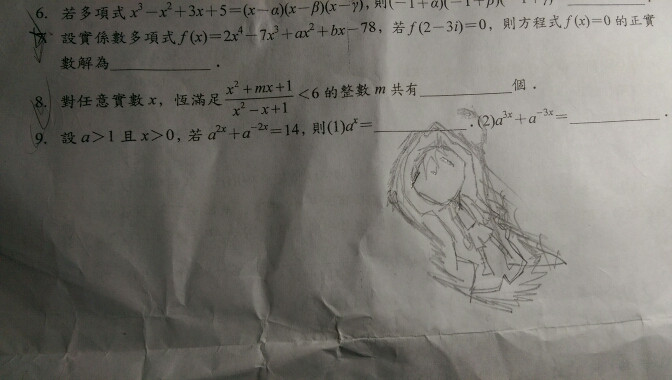 6. 若多項式 x³－x²＋3x＋5＝(x－α)(x－β)(x－γ), 則(－1＋α)(－1＋β)
設實係數多項式 f(x)＝2x⁴－7x³＋ax²＋bx－78, 若 f(2－3i)＝0, 則方程式 f(x)＝0 的正實
數解為__________.
8. 對任意實數 x, 恆滿足 (x²＋mx＋1)/(x²－x＋1)＜6 的整數 m 共有__________個.
9. 設 a＞1 且 x＞0, 若 a²ˣ＋a⁻²ˣ＝14, 則(1)aˣ＝__________. (2)a³ˣ＋a⁻³ˣ＝__________.